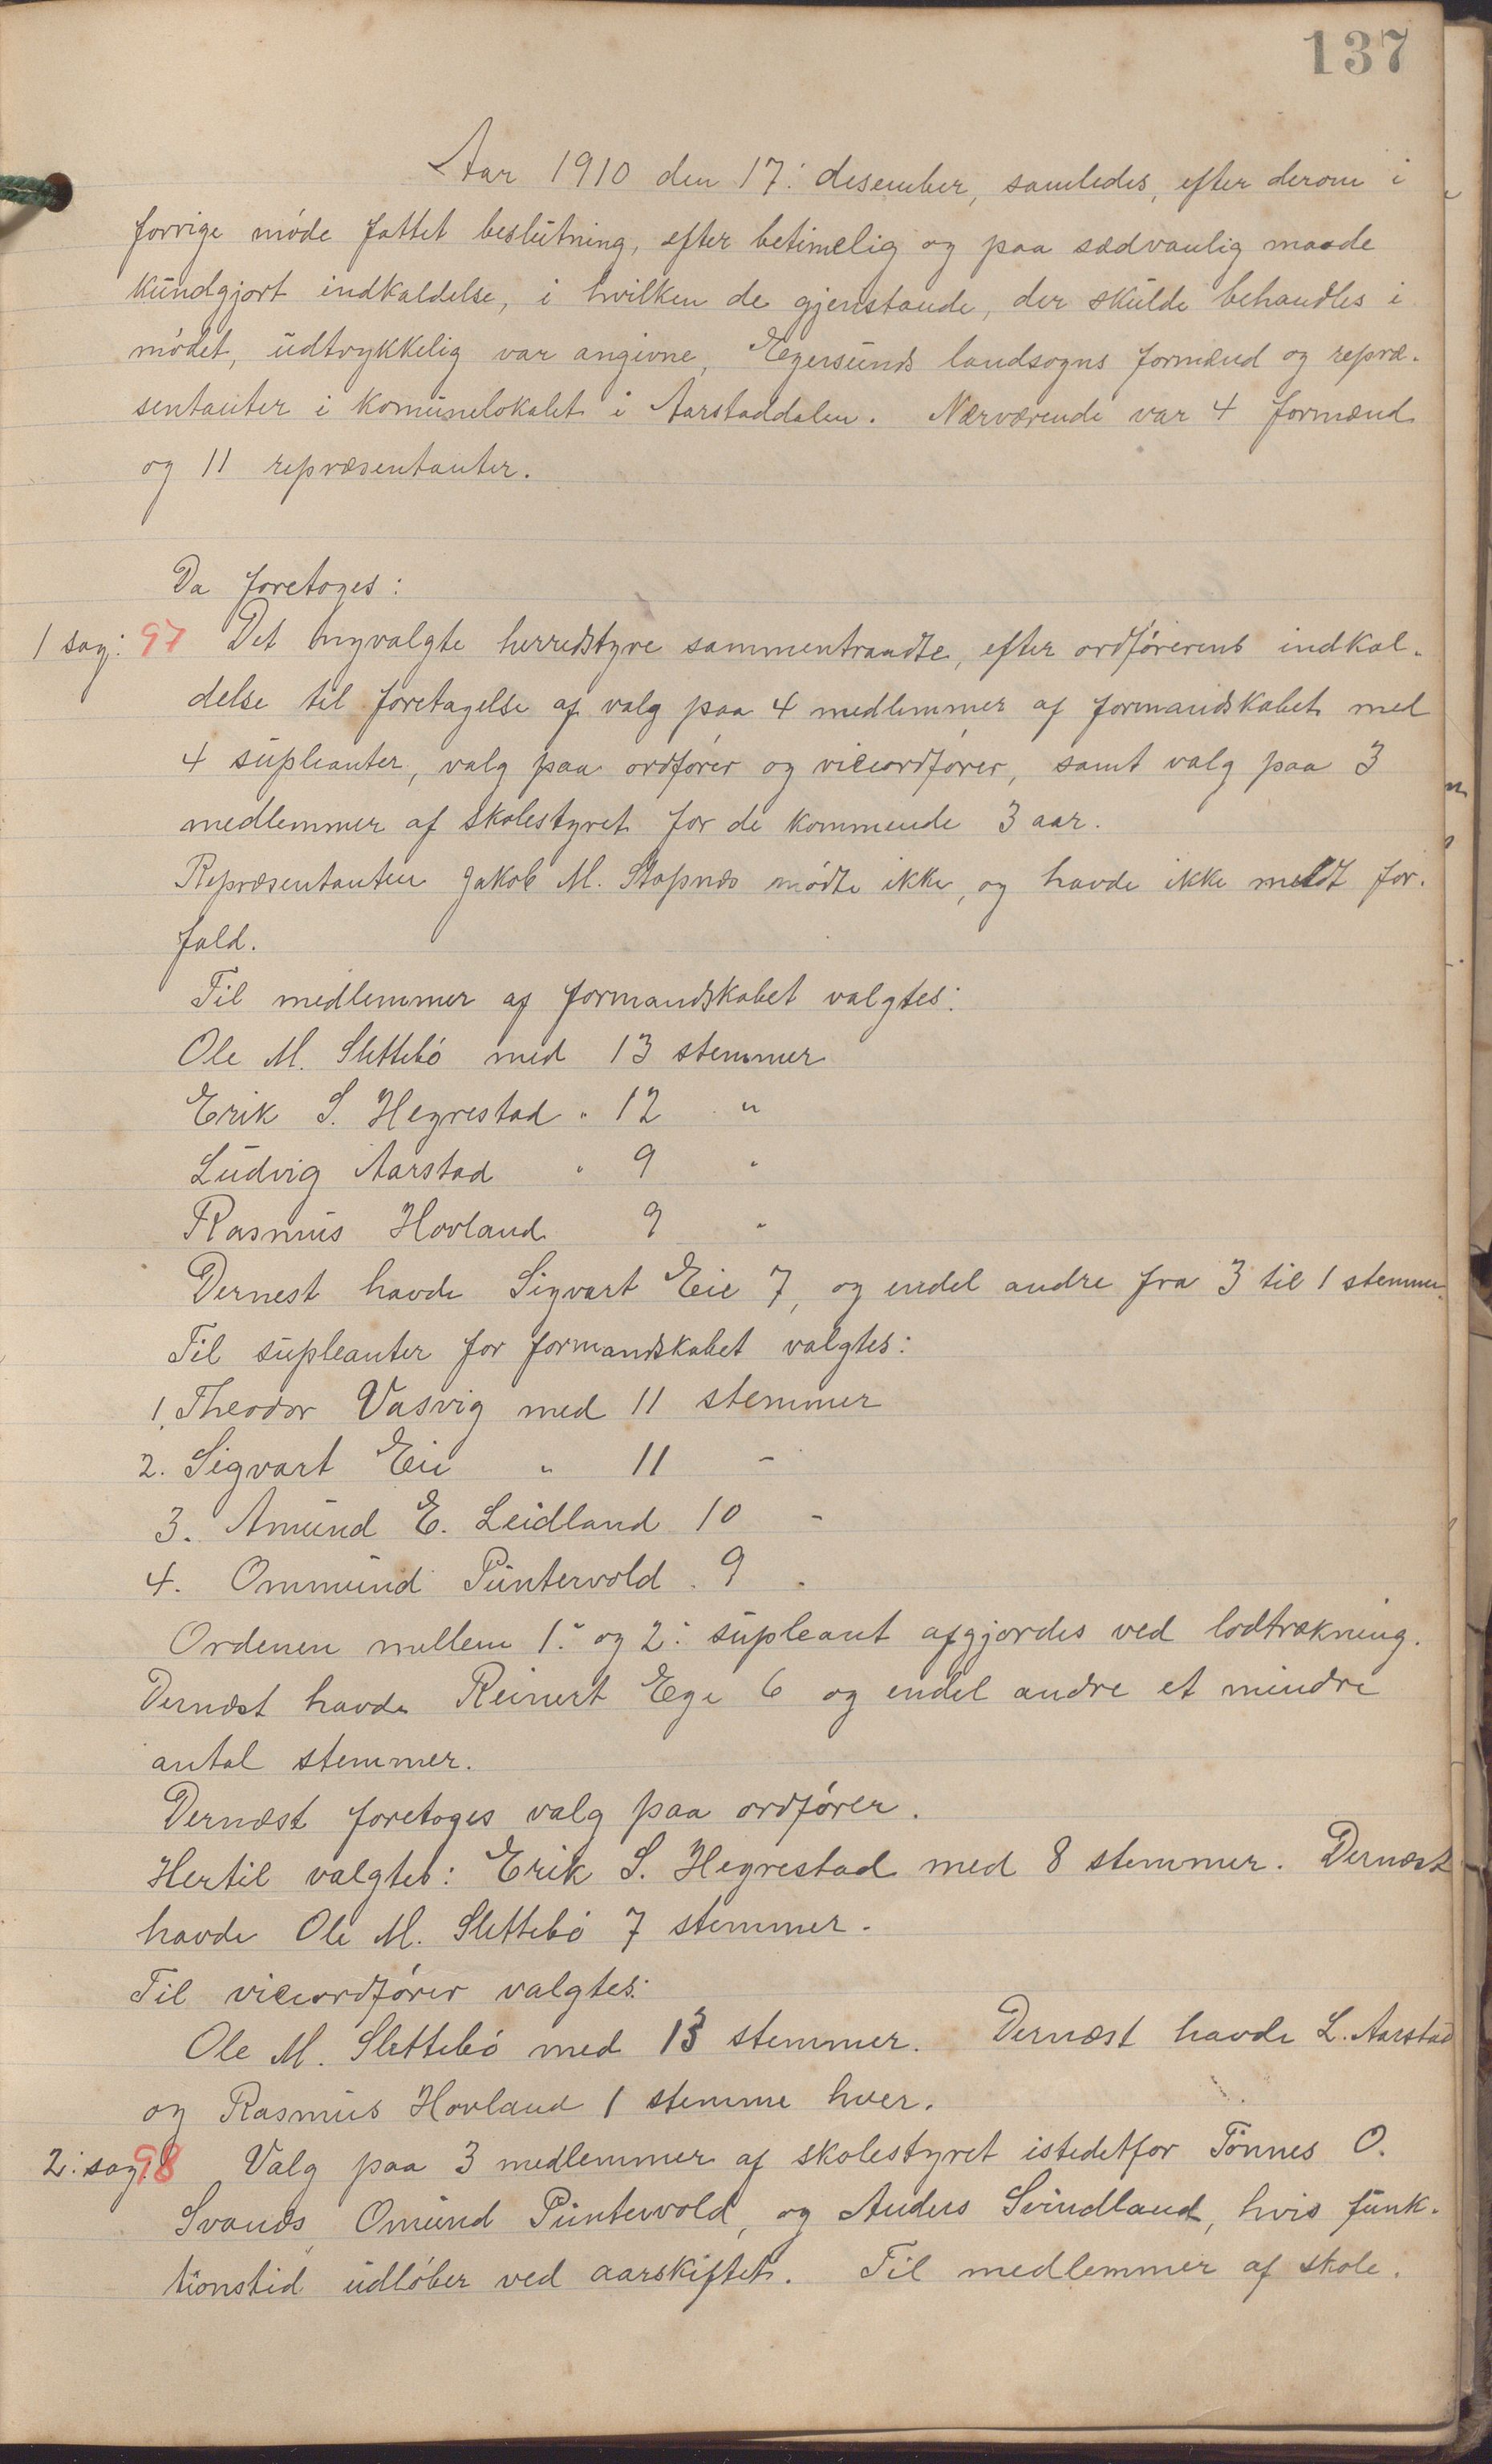 137
Aar 1910 den 17: desember, samledes, efter derom i
forrige møde fattet beslutning, efter betimelig og paa sædvanlig maade
kundgjort indkaldelse, i hvilken de gjenstande, der skulde behandles i
mødet, udtrykkelig var angivne, Egersunds landsogns formænd og repræ-
sentanter i komunelokalet i Aarstaddalen. Nærværende var 4 formænd
og 11 repræsentanter.
Da foretoges:
1 sag: 97 Det nyvalgte herredstyre sammentraadte, efter ordførerens indkal-
delse til foretagelse af valg paa 4 medlemmer af formandskabet med
4 supleanter, valg paa ordfører og viceordfører, samt valg paa 3
medlemmer af skolestyret for de kommende 3 aar.
Repræsentanten Jakob M. Stapnes mødte ikke, og havde ikke meldt for-
fald.
Til medlemmer af formandskabet valgtes:
Ole M. Slettebø med 13 stemmer
Erik S. Hegrestad " 12 "
Ludvig Aarstad " 9 "
Rasmus Hovland 9 "
Dernest havde Sigvart Eie 7, og endel andre fra 3 til 1 stemmer.
Til supleanter for formandskabet valgtes:
1. Theodor Vasvig med 11 stemmer
2. Sigvart Eie " 11 -
3. Amund E. Leidland 10 -
4. Ommund Puntervold . 9 .
Ordenen mellem 1.: og 2: supleant afgjordes ved lodtrækning.
Dernæst havde Reinert Ege 6 og endel andre et mindre
antal stemmer.
Dernæst foretoges valg paa ordfører.
Hertil valgtes: Erik S. Hegrestad med 8 stemmer. Dernæst
havde Ole M. Slettebø 7 stemmer.
Til viceordfører valgtes:
Ole M. Slettebø med 13 stemmer. Dernæst havde L. Aarstad
og Rasmus Hovland 1 stemme hver.
2: sag 98 Valg paa 3 medlemmer af skolestyret istedetfor Tønnes O.
Svanes, Omund Puntervold, og Anders Svindland, hvis funk-
tionstid udløber ved aarskiftet. Til medlemmer af skole-